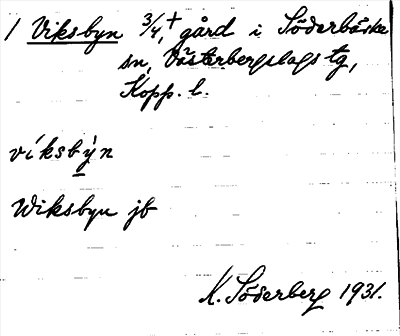 1 Viksbyn 3/4, + gård i Söderbärke
sn, Västerbergslags tg,
Kopp. l.
víksbỳ̱n
Wiksbyn jb
K. Söderberg 1931.